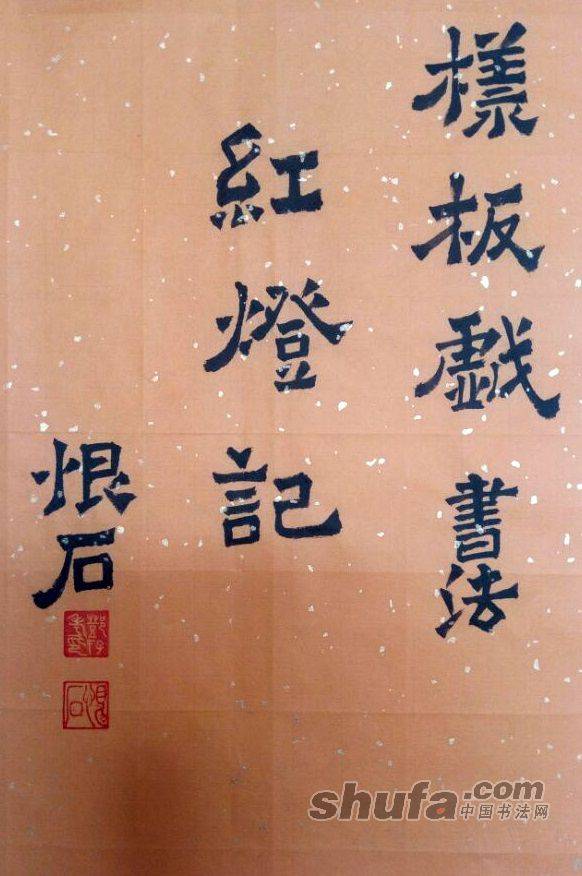 樣板戲書法
紅燈記
恨石
恨石
shufa.com
中国书法网